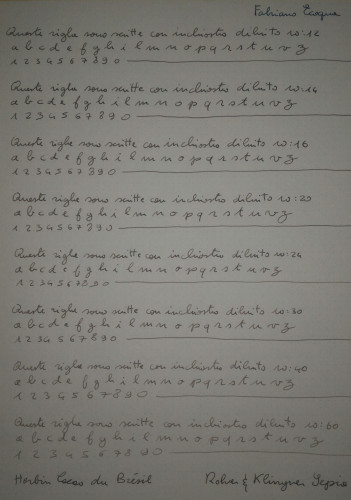 Fabiano
Queste righe sono scritte con inchiostro diluito 10:12
a b c d e f g h i l m n o p q r s t u v z
1 2 3 4 5 6 7 8 9 0
Queste righe sono scritte con inchiostro diluito 10:14
a b c d e f g h i l m n o p q r s t u v z
1 2 3 4 5 6 7 8 9 0
Queste righe sono scritte con inchiostro diluito 10:16
a b c d e f g h i l m n o p q r s t u v z
1 2 3 4 5 6 7 8 9 0
Queste righe sono scritte con inchiostro diluito 10:20
a b c d e f g h i l m n o p q r s t u v z
1 2 3 4 5 6 7 8 9 0
Queste righe sono scritte con inchiostro diluito 10:24
a b c d e f g h i l m n o p q r s t u v z
1 2 3 4 5 6 7 8 9 0
Queste righe sono scritte con inchiostro diluito 10:30
a b c d e f g h i l m n o p q r s t u v z
1 2 3 4 5 6 7 8 9 0
Queste righe sono scritte con inchiostro diluito 10:40
a b c d e f g h i l m n o p q r s t u v z
1 2 3 4 5 6 7 8 9 0
Queste righe sono scritte con inchiostro diluito 10:60
a b c d e f g h i l m n o p q r s t u v z
1 2 3 4 5 6 7 8 9 0
Herbin Cacao du Brésil Rohrer & Klingner Sepia